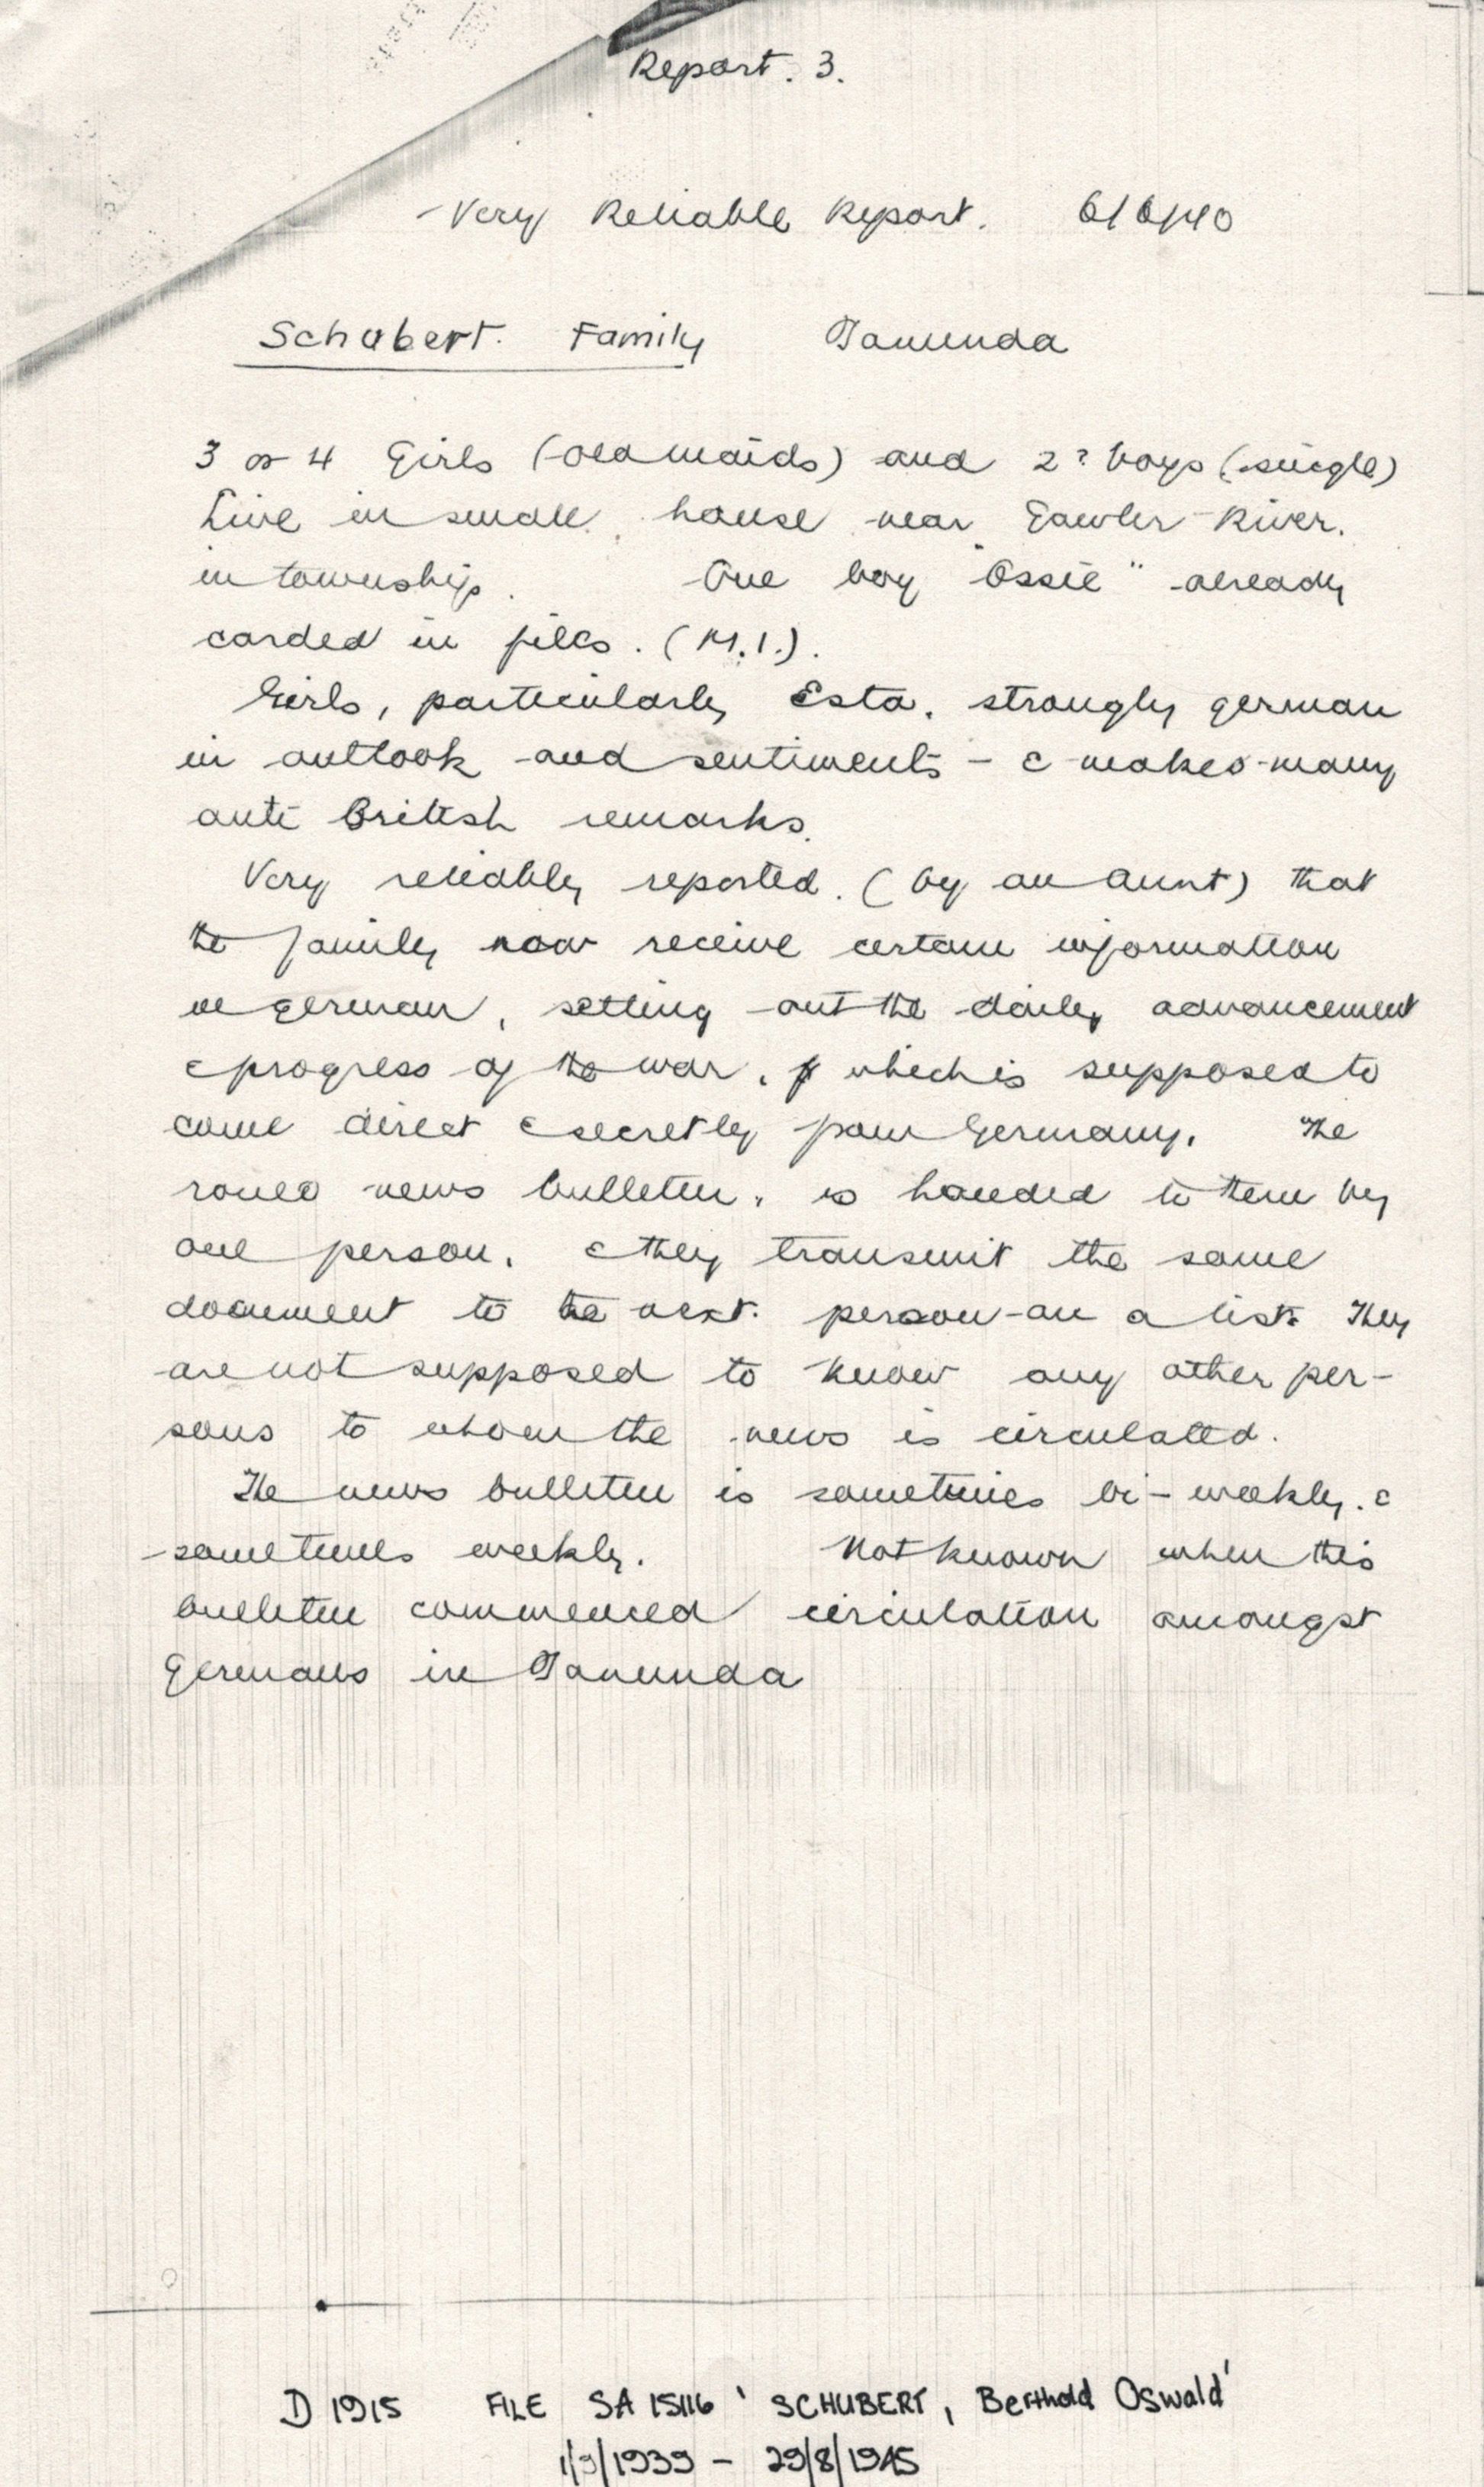 Report. 3.
Very Reliable Report. 6/6/40
Schubert. Family Tanunda
3 or 4 Girls (old maids) and 2? boys (single)
Live in small house near Gawler River.
in township. One boy "Ossie" already
carded in files. (M.I.).
Girls, particularly Esta. strongly german
in outlook and sentiments - & makes many
anti British remarks.
Very reliably reported. (by an Aunt) that
the family now receive certain information
in german, setting out the daily advancement
& progress of the war. which is supposed to
come direct & secretly from Germany. The
roneo news bulletin, is handed to them by
one person. & they transmit the same
document to the next. person on a list. They
are not supposed to know any other per-
sons to whom the news is circulated.
The news bulletin is sometimes bi-weekly. &
sometimes weekly. Not known when this
bulletin commenced circulation amongst
Germans in Tanunda
D 1915 FILE SA 15116 'SCHUBERT, Berthold Oswald'
1/9/1939 - 29/8/1945